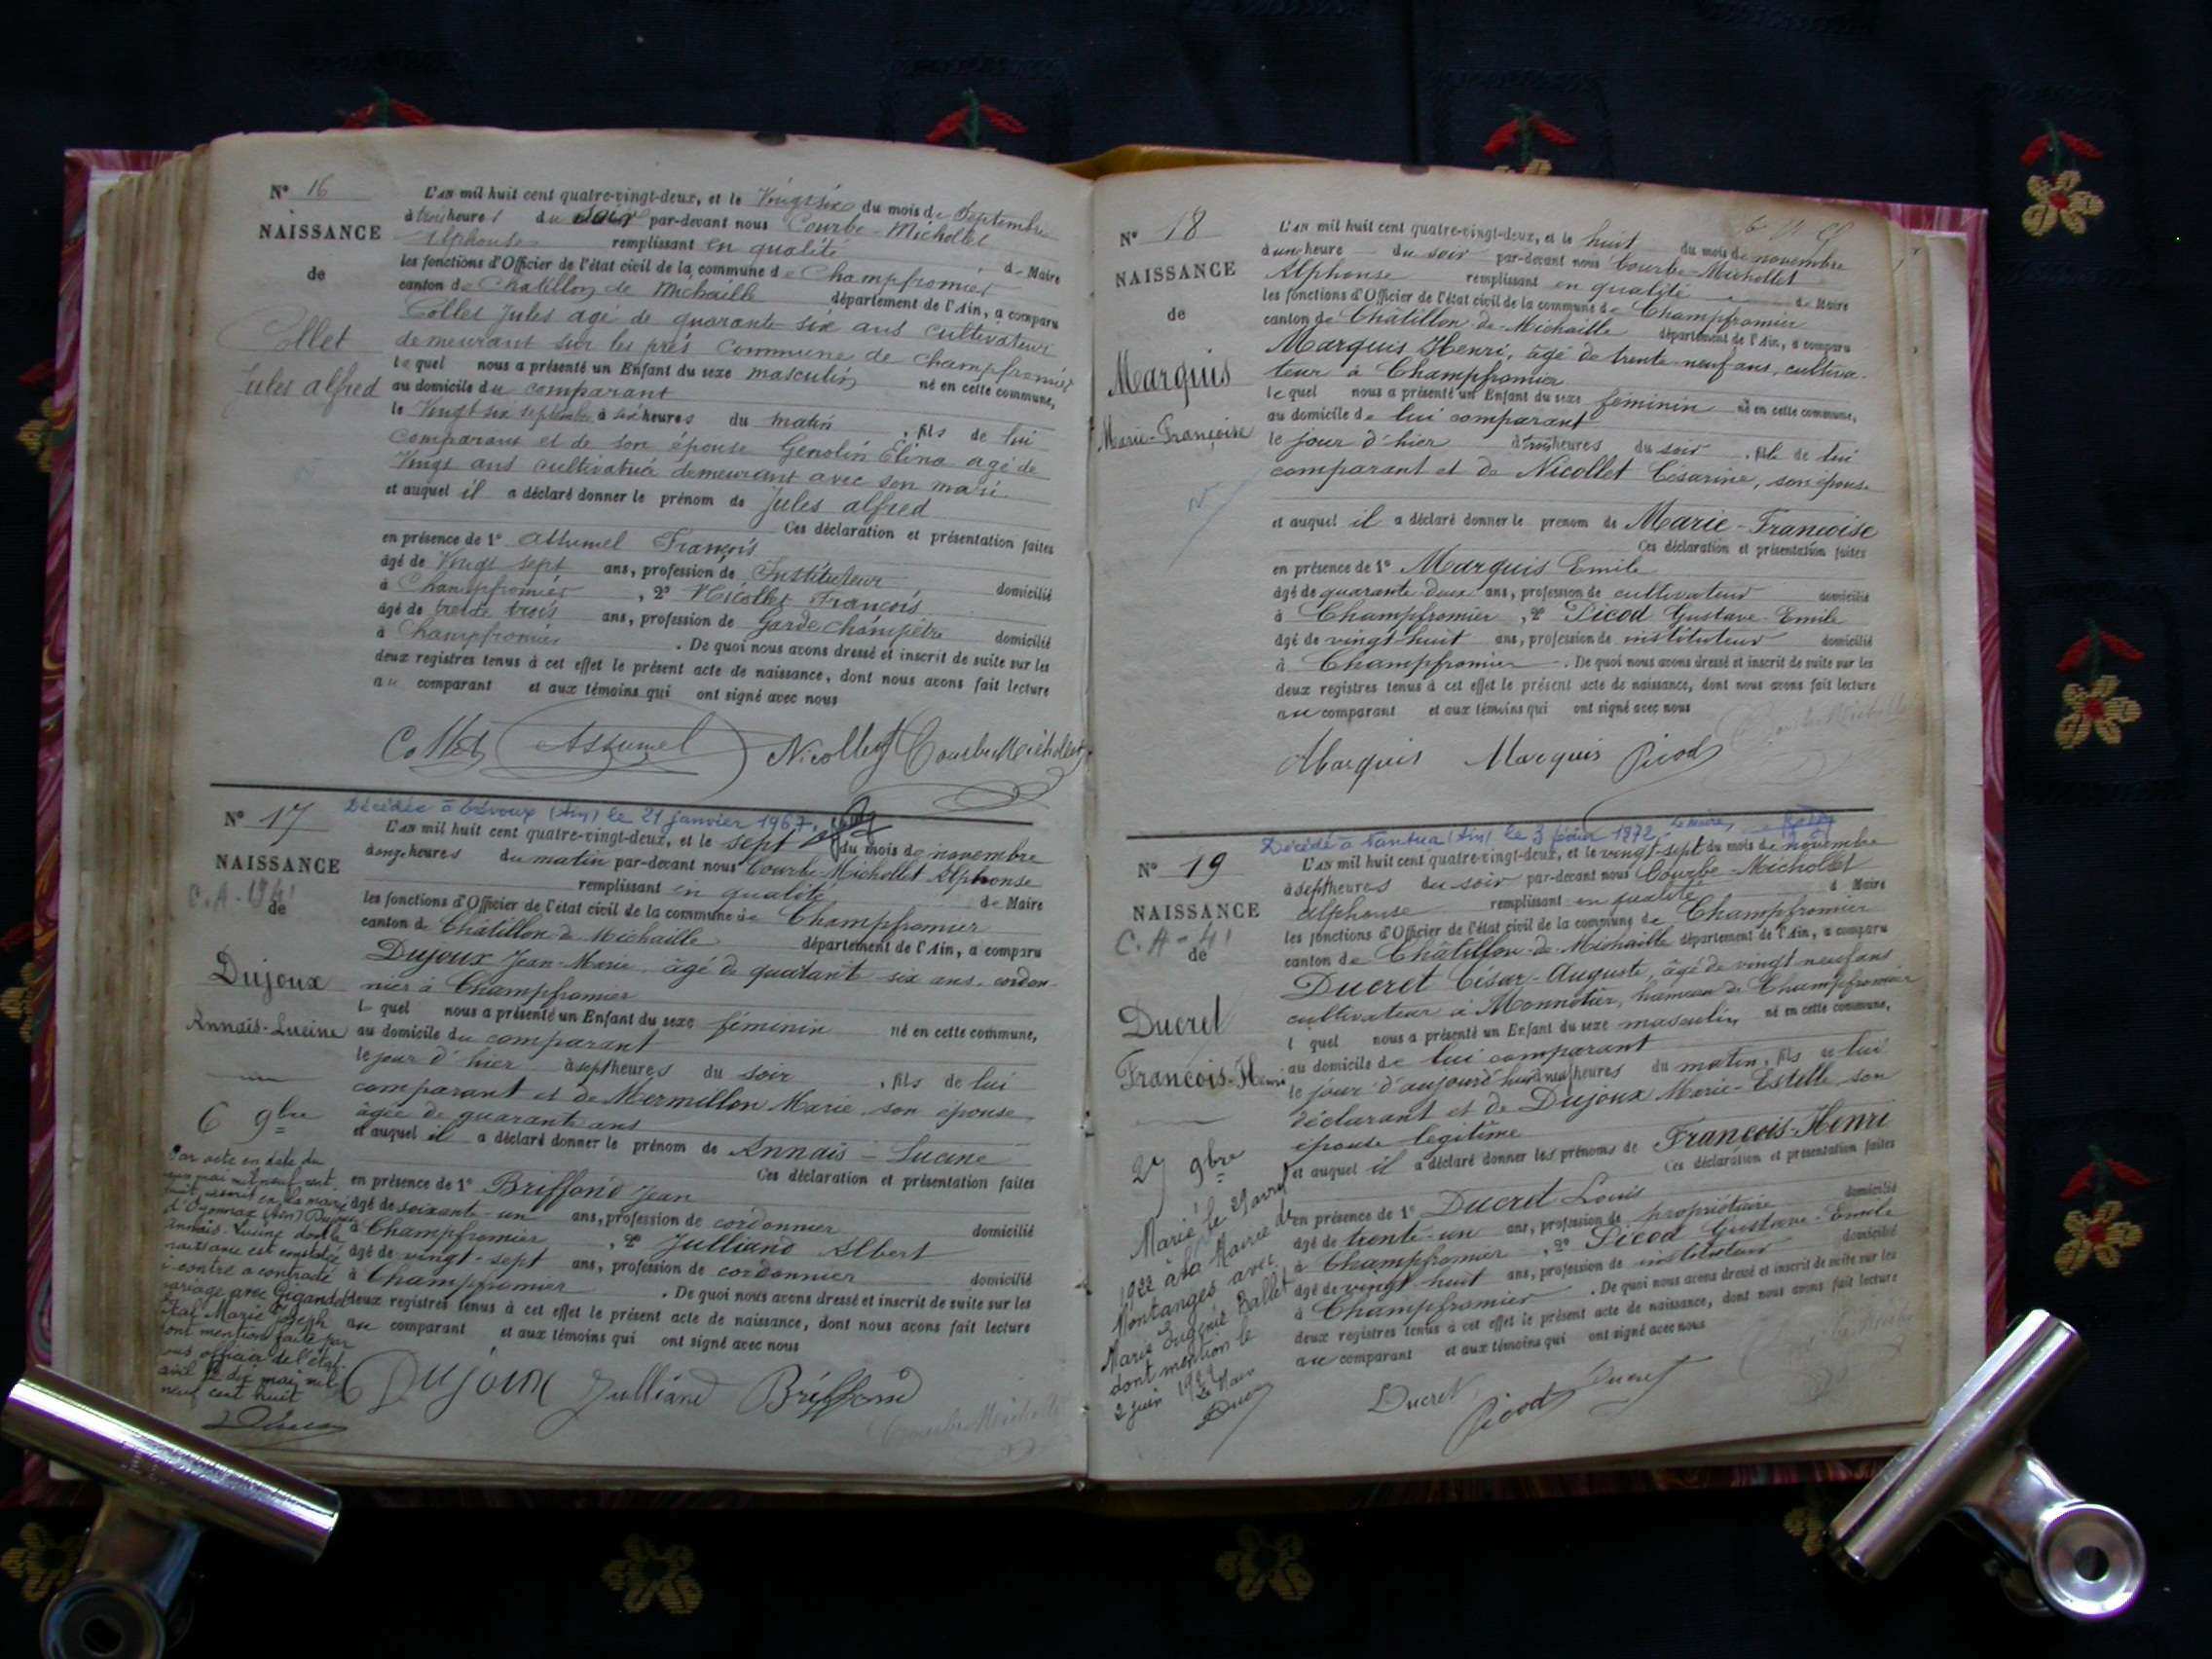 N° 16
NAISSANCE
de
Collet
Jules alfred
L'AN mil huit cent quatre-vingt-deux, et le Vingt six du mois de Septembre
à trois heures du soir par-devant nous Courbe-Michollet
Alphonse remplissant en qualité de Maire
les fonctions d'Officier de l'état civil de la commune de Champfromier
canton de Chatillon de Michaille département de l'Ain, a comparu
Collet Jules agé de quarante six ans cultivateur
demeurant sur les prés commune de champfromier
lequel nous a présenté un Enfant du sexe masculin né en cette commune,
au domicile du comparant
le Vingt six septembre à six heures du matin, fils de lui
comparant et de son épouse Genolin Elina agé de
Vingt ans cultivatrice demeurant avec son mari
et auquel il a déclaré donner le prénom de Jules alfred
Ces déclaration et présentation faites
en présence de 1° Assumel François
âgé de Vingt sept ans, profession de Instituteur domicilié
à Champfromier, 2° Nicollet François
âgé de trente trois ans, profession de Garde champêtre domicilié
à Champfromier. De quoi nous avons dressé et inscrit de suite sur les
deux registres tenus à cet effet le présent acte de naissance, dont nous avons fait lecture
au comparant et aux témoins qui ont signé avec nous
Collet Assumel Nicollet Courbe Michollet
N° 17
Décédée à Trévoux (Ain) le 21 janvier 1967.
NAISSANCE
de
Dujoux
Annaïs-Lucine
6 9bre
L'AN mil huit cent quatre-vingt-deux, et le sept du mois de novembre
à onze heures du matin par-devant nous Courbe-Michollet Alphonse
remplissant en qualité de Maire
les fonctions d'Officier de l'état civil de la commune de Champfromier
canton de Châtillon de Michaille département de l'Ain, a comparu
Dujoux Jean-Marie, âgé de quarante-six ans, cordon-
nier à Champfromier
lequel nous a présenté un Enfant du sexe féminin né en cette commune,
au domicile du comparant
le jour d'hier à sept heures du soir, fils de lui
comparant et de Mermillon Marie, son épouse,
âgée de quarante ans
et auquel il a déclaré donner le prénom de Annaïs-Lucine
Ces déclaration et présentation faites
en présence de 1° Briffond Jean
âgé de soixante-un ans, profession de cordonnier domicilié
à Champfromier, 2° Julliand Albert
âgé de vingt-sept ans, profession de cordonnier domicilié
à Champfromier. De quoi nous avons dressé et inscrit de suite sur les
deux registres tenus à cet effet le présent acte de naissance, dont nous avons fait lecture
au comparant et aux témoins qui ont signé avec nous
Par acte en date du
mai mil neuf cent
huit, inscrit en la mairie
d'Oyonnax (Ain) Dujoux
Annaïs-Lucine dont la
naissance est constatée
ci-contre a contracté
mariage avec Gigandet
Marie Joseph
dont mention faite par
nous officier de l'état-
civil le dix mai mil
neuf cent huit
Dujoux Julliand Briffond
Courbe Michollet
N° 18
NAISSANCE
de
Marquis
Marie-Françoise
L'AN mil huit cent quatre-vingt-deux, et le huit du mois de novembre
à une heure du soir par-devant nous Courbe-Michollet
Alphonse remplissant en qualité de Maire
les fonctions d'Officier de l'état civil de la commune de Champfromier
canton de Châtillon-de-Michaille département de l'Ain, a comparu
Marquis Henri, âgé de trente-neuf ans, cultiva-
teur à Champfromier
lequel nous a présenté un Enfant du sexe féminin né en cette commune,
au domicile de lui comparant
le jour d'hier à trois heures du soir, fille de lui
comparant et de Nicollet Césarine, son épouse
et auquel il a déclaré donner le prénom de Marie-Françoise
Ces déclaration et présentation faites
en présence de 1° Marquis Emile
âgé de quarante-deux ans, profession de cultivateur domicilié
à Champfromier, 2° Picod Gustave-Emile
âgé de vingt-huit ans, profession de instituteur domicilié
à Champfromier. De quoi nous avons dressé et inscrit de suite sur les
deux registres tenus à cet effet le présent acte de naissance, dont nous avons fait lecture
au comparant et aux témoins qui ont signé avec nous
Marquis Marquis Picod
N° 19
Décédé à Nantua (Ain) le 3 février 1972. Le Maire,
NAISSANCE
C.A-41
de
Ducret
François-Henri
27 9bre
L'AN mil huit cent quatre-vingt-deux, et le vingt-sept du mois de novembre
à sept heures du soir par-devant nous Courbe-Michollet
Alphonse remplissant en qualité de Maire
les fonctions d'Officier de l'état civil de la commune de Champfromier
canton de Châtillon-de-Michaille département de l'Ain, a comparu
Ducret César-Auguste, âgé de vingt neuf ans
cultivateur à Monnetier, hameau de Champfromier
lequel nous a présenté un Enfant du sexe masculin né en cette commune,
au domicile de lui comparant
le jour d'aujourd'hui à neuf heures du matin, fils de lui
déclarant et de Dujoux Marie-Estelle son
épouse légitime
et auquel il a déclaré donner les prénoms de François-Henri
Ces déclaration et présentation faites
en présence de 1° Ducret Louis
âgé de trente-un ans, profession de propriétaire domicilié
à Champfromier, 2° Picod Gustave-Emile
âgé de vingt-huit ans, profession de instituteur domicilié
à Champfromier. De quoi nous avons dressé et inscrit de suite sur les
deux registres tenus à cet effet le présent acte de naissance, dont nous avons fait lecture
au comparant et aux témoins qui ont signé avec nous
Marié le 29 avril
1922 à la Mairie de
Montanges avec
Marie Eugénie Ballet
dont mention le
2 juin 1922
Le Maire
Ducret Picod Ducret